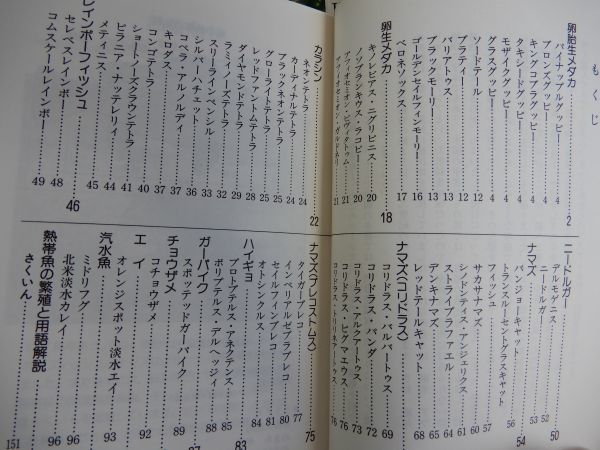 もくじ
卵胎生メダカ……2
パイナップルグッピー……4
ブロンズグッピー……4
キングコブラグッピー……4
タキシードグッピー……4
モザイクグッピー……4
グラスグッピー……4
ソードテール……12
プラティー……12
バリアトゥス……13
ブラックモーリー……13
ゴールデンセイルフィンモーリー……16
ベロネソックス……17
卵生メダカ……18
キノレビアス・ニグリピニス……20
ノソブランキウス・ラコビー……20
アフィオセミオン・ビヴィタトゥム……21
アフィオセミオン・ガルドネリ……21
カラシン……22
ネオンテトラ……24
カージナルテトラ……24
ブラックネオンテトラ……25
グローライトテトラ……25
レッドファントムテトラ……28
ダイヤモンドテトラ……29
ラミノーズテトラ……32
スリーラインペンシル……33
シルバーハチェット……36
コペラ・アルノルディ……37
キロダス……37
コンゴテトラ……40
ショートノーズクラウンテトラ……41
ピラニア・ナッテレリィ……44
メティニス……45
レインボーフィッシュ……46
セレベスレインボー……48
コムスケールレインボー……49
ニードルガー……50
デルモゲニス……52
ニードルガー……53
ナマズ……54
バンジョーキャット……56
トランスルーセントグラスキャット
フィッシュ……57
サカサナマズ……60
シノドンティス・アンジェリクス……61
ストライプラファエル……64
デンキナマズ……65
レッドテールキャット……68
ナマズ〈コリドラス〉
コリドラス・バルバートゥス……69
コリドラス・パンダ……72
コリドラス・アルクアートゥス……73
コリドラス・ピグマエウス……76
コリドラス・トリリネアートゥス……76
ナマズ〈プレコストムス〉……75
タイガープレコ……77
インペリアルゼブラプレコ……80
セイルフィンプレコ……81
オトシンクルス……84
ハイギョ……83
プロトプテルス・アネクテンス……85
ポリプテルス・デルヘッジィ……88
ガーパイク……87
スポッテッドガーパイク……89
チョウザメ
コチョウザメ……92
エイ
オレンジスポット淡水エイ……93
汽水魚
ミドリフグ……96
北米淡水カレイ……96
熱帯魚の繁殖と用語解説
さくいん……151